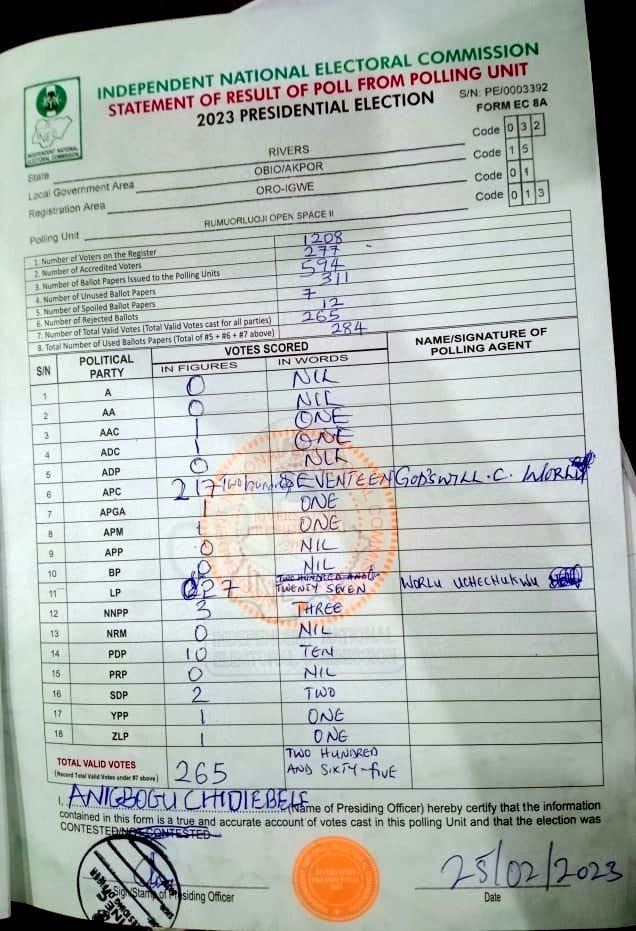 INDEPENDENT NATIONAL ELECTORAL COMMISSION
STATEMENT OF RESULT OF POLL FROM POLLING UNIT
2023 PRESIDENTIAL ELECTION
S/N: PE/0003392
FORM EC 8A
INDEPENDENT NATIONAL ELECTORAL COMMISSION
State RIVERS Code 0 3 2
Local Government Area OBIO/AKPOR Code 1 5
Registration Area ORO-IGWE Code 0 1
Polling Unit RUMUORLUOJI OPEN SPACE II Code 0 1 3
1. Number of Voters on the Register 1208
2. Number of Accredited Voters 277
3. Number of Ballot Papers Issued to the Polling Units 594
4. Number of Unused Ballot Papers 311
5. Number of Spoiled Ballot Papers 7
6. Number of Rejected Ballots 12
7. Number of Total Valid Votes (Total Valid Votes cast for all parties) 265
8. Total Number of Used Ballots Papers (Total of #5 + #6 + #7 above) 284
S/N POLITICAL PARTY VOTES SCORED NAME/SIGNATURE OF POLLING AGENT
IN FIGURES IN WORDS
1 A 0 NIL
2 AA 0 NIL
3 AAC 1 ONE
4 ADC 1 ONE
5 ADP 0 NIL
6 APC 217 TWO hundred SEVENTEEN GOD'SWILL . C . WORLU
7 APGA 1 ONE
8 APM 1 ONE
9 APP 0 NIL
10 BP 0 NIL
11 LP 27 TWO HUNDRED AND TWENTY SEVEN WORLU UCHECHUKWU
12 NNPP 3 THREE
13 NRM 0 NIL
14 PDP 10 TEN
15 PRP 0 NIL
16 SDP 2 TWO
17 YPP 1 ONE
18 ZLP 1 ONE
TOTAL VALID VOTES 265 TWO HUNDRED
(Record Total Valid Votes under #7 above) AND SIXTY-five
I, ANIGBOGU CHIDIEBELE (Name of Presiding Officer) hereby certify that the information
contained in this form is a true and accurate account of votes cast in this polling Unit and that the election was
CONTESTED/NOT CONTESTED
Sign/Stamp of Presiding Officer
25/02/2023
Date